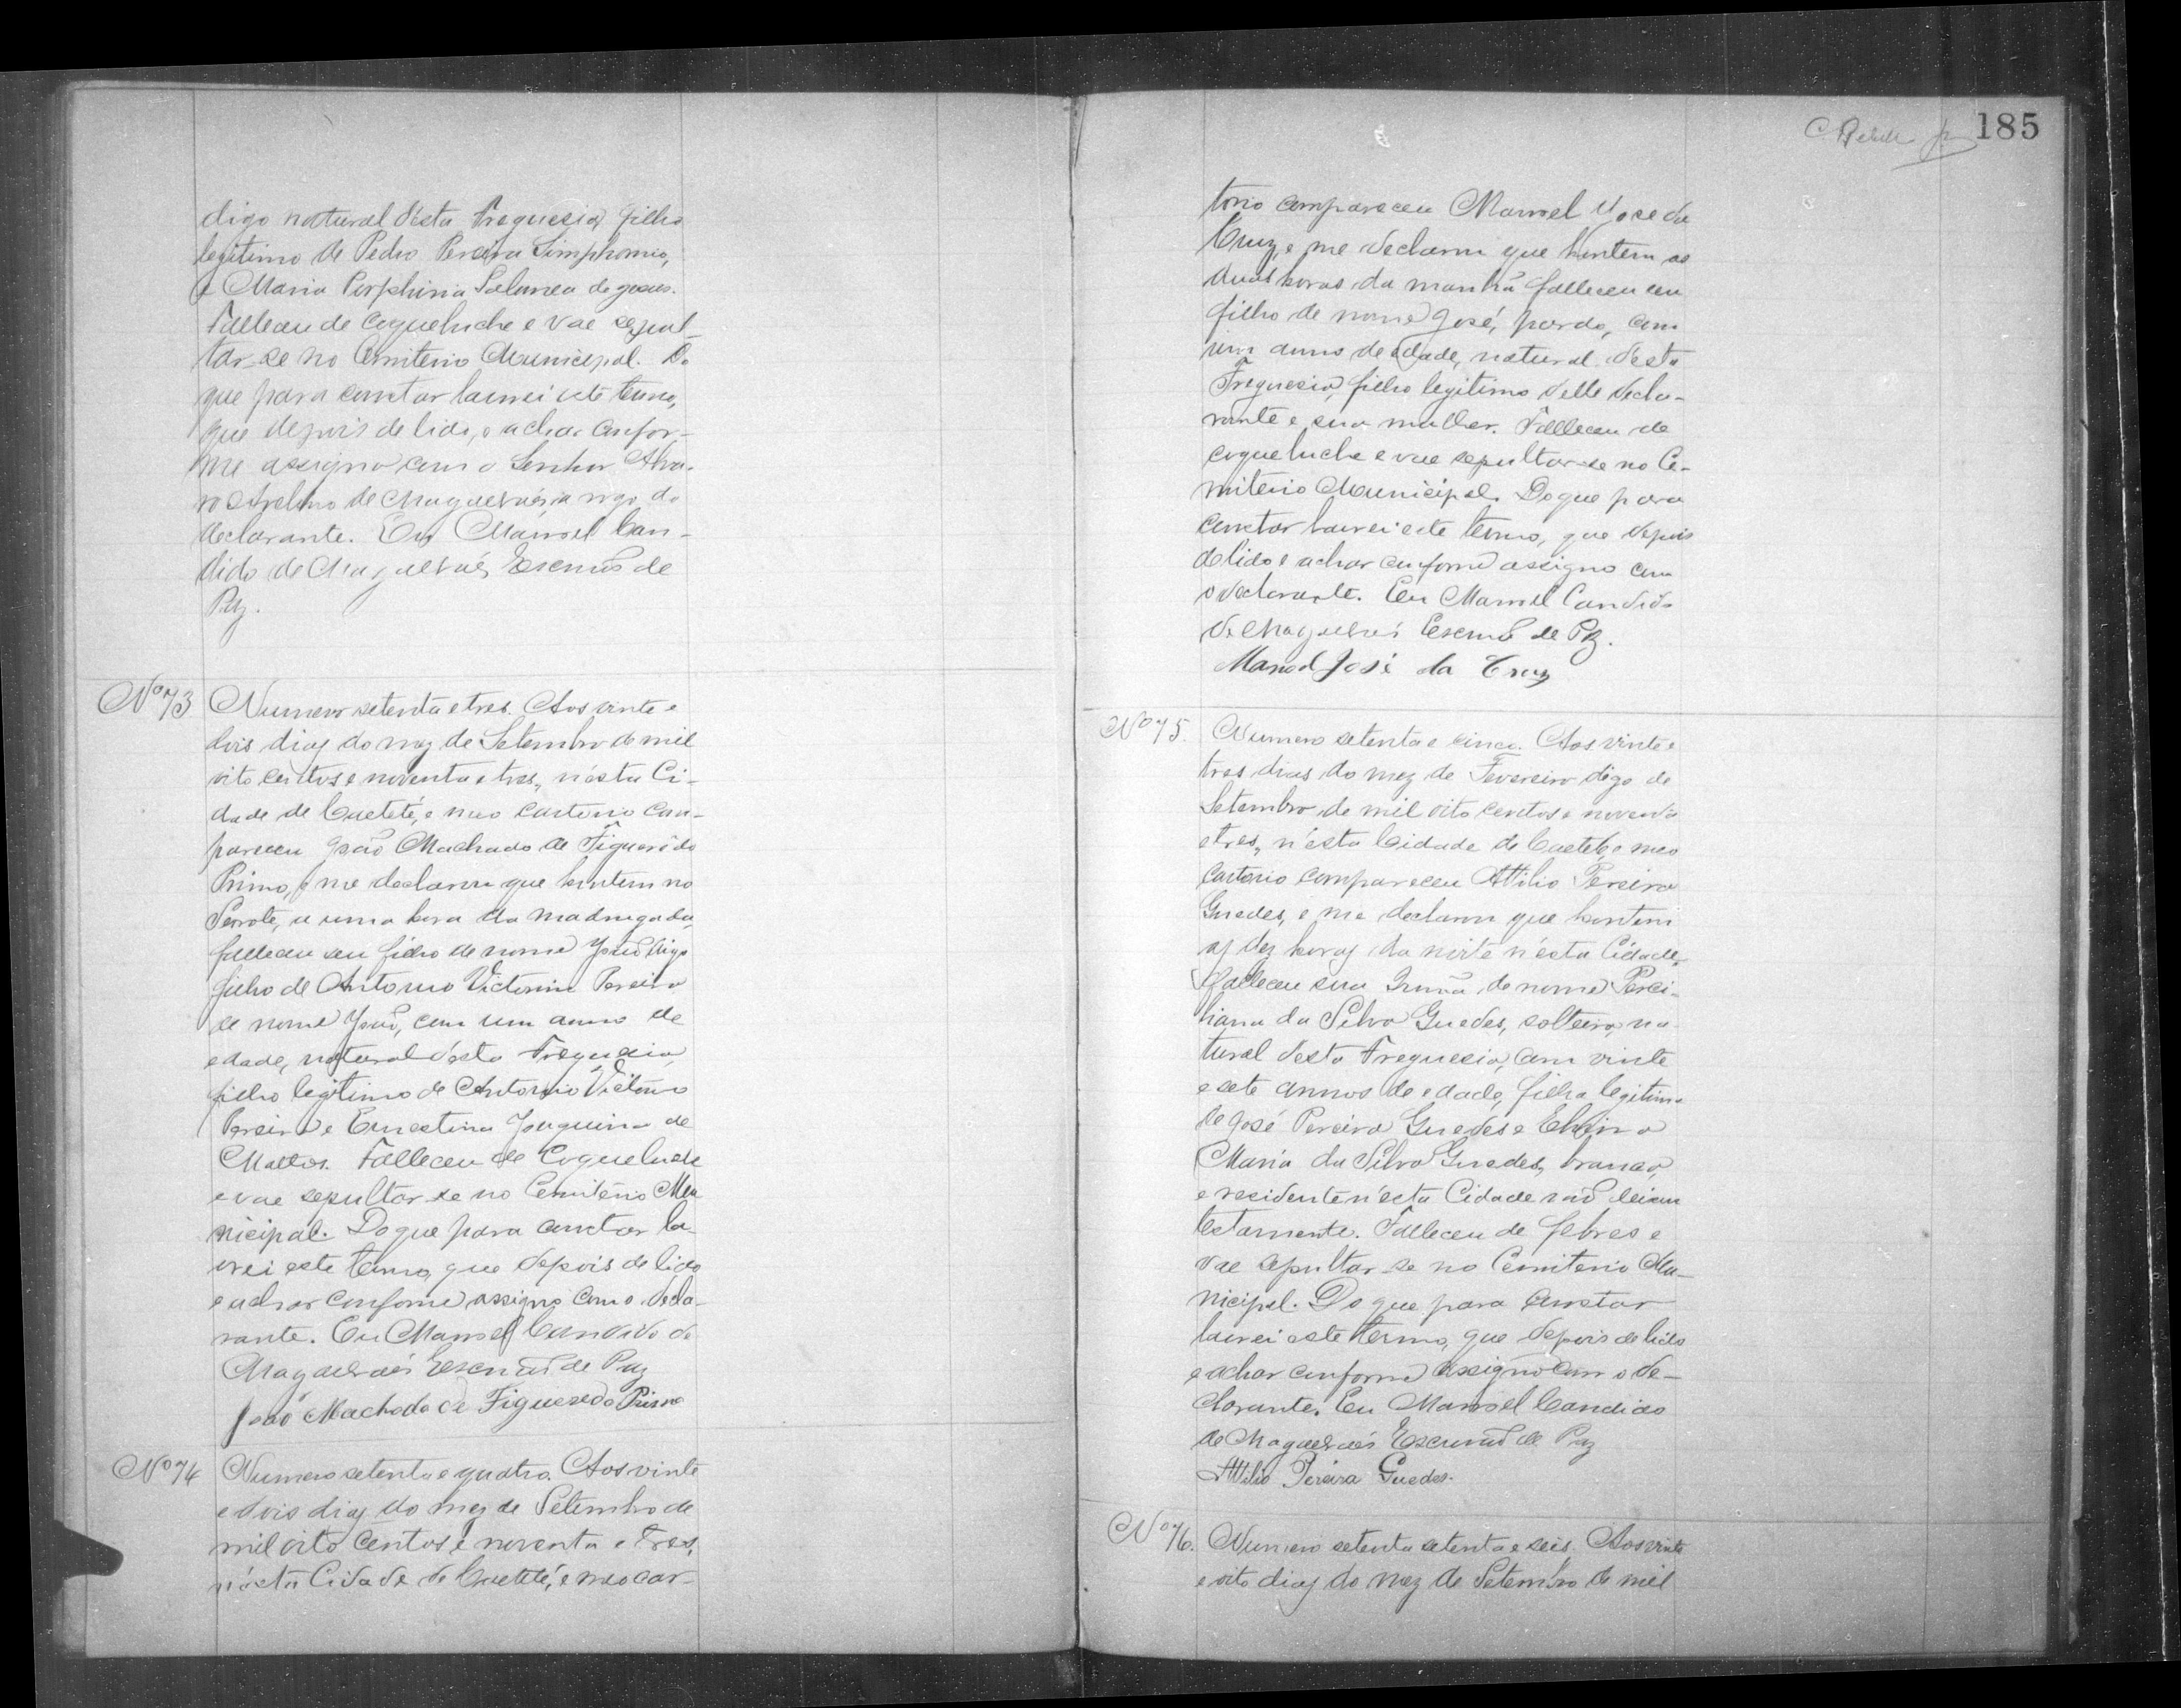 digo natural désta Freguesia, filho
legitimo de Pedro Pereira Simphronio,
e Maria Porphiria Salumea de Jesus.
Falleceu de coqueluche e vae sepul-
tar-se no Cemiterio Municipal. Do
que para constar lavrei este termo,
que depois de lido, e achar confor-
me assigno com o Senhor Alva-
ro Avelino de Magalhães, a rogo do
declarante. Eu Manoel Can-
dido de Magalhães Escrivão de
Paz.
Nº 73 Numero setenta e tres. Aos vinte e
dois dias do mez de Setembro de mil
oito centos e noventa e tres, n'ésta Ci-
dade de Caeteté, e meo cartorio com-
pareceu João Machado de Figueirêdo
Primo, e me declarou que hontem no
a uma hora da madrugada,
falleceu seu filho de nome João digo
filho de Antonio Victorino Pereira
de nome João, com um anno de
edade, natural d'ésta Freguesia,
filho legitimo de Antonio Victorino
Pereira e Ernestina Joaquina de
Mattos. Falleceu de Coqueluche
e vae sepultar-se no Cemiterio Mu
nicipal. Do que para constar la-
vrei este termo, que depois de lido
e achar conforme assigno com o decla-
rante. Eu Manoel Candido de
Magalhães Escrivão de Paz
João Machado de Figueredo Primo
Nº 74 Numero setenta e quatro. Aos vinte
e dois dias do mez de Setembro de
mil oito centos e noventa e tres,
n'ésta Cidade de Caeteté, e meo car-
185
torio compareceu Manoel José da
Cruz, e me declarou que hontem as
duas horas da manhã falleceu seu
filho de nome José, pardo, com
um anno de edade, natural désta
Freguesia, filho legitimo delle decla-
rante e sua mulher. Falleceu de
coqueluche e vae sepultar-se no Ce-
miterio Municipal. Do que para
constar lavrei este termo, que depois
de lido e achar conforme assigno com
o declarante. Eu Manoel Candido
de Magalhães Escrivão de Paz.
Manoel José da Cruz
Nº 75. Numero setenta e cinco. Aos vinte e
tres dias do mez de Fevereiro digo de
Setembro de mil oito centos e noventa
e tres, n'ésta Cidade de Caeteté, e meo
Cartorio compareceu Attilio Pereira
Guedes, e me declarou que hontem
as dez horas da noite n'ésta Cidade,
falleceu sua Irmã de nome Perci-
liana da Silva Guedes, solteira, na
tural désta Freguesia, com vinte
e sete annos de edade, filha legitima
de José Pereira Guedes e
Maria da Silva Guedes, branca,
e residente n'ésta Cidade não deixou
testamento. Falleceu de febres e
vae sepultar-se no Cemiterio Mu-
nicipal. Do que para constar
lavrei este termo, que depois de lido
e achar conforme assigno com o de-
clarante. Eu Manoel Candido
de Magalhães Escrivão de Paz
Attilio Pereira Guedes.
Nº 76. Numero setenta setenta e seis. Aos vinte
e oito dias do mez de Setembro de mil